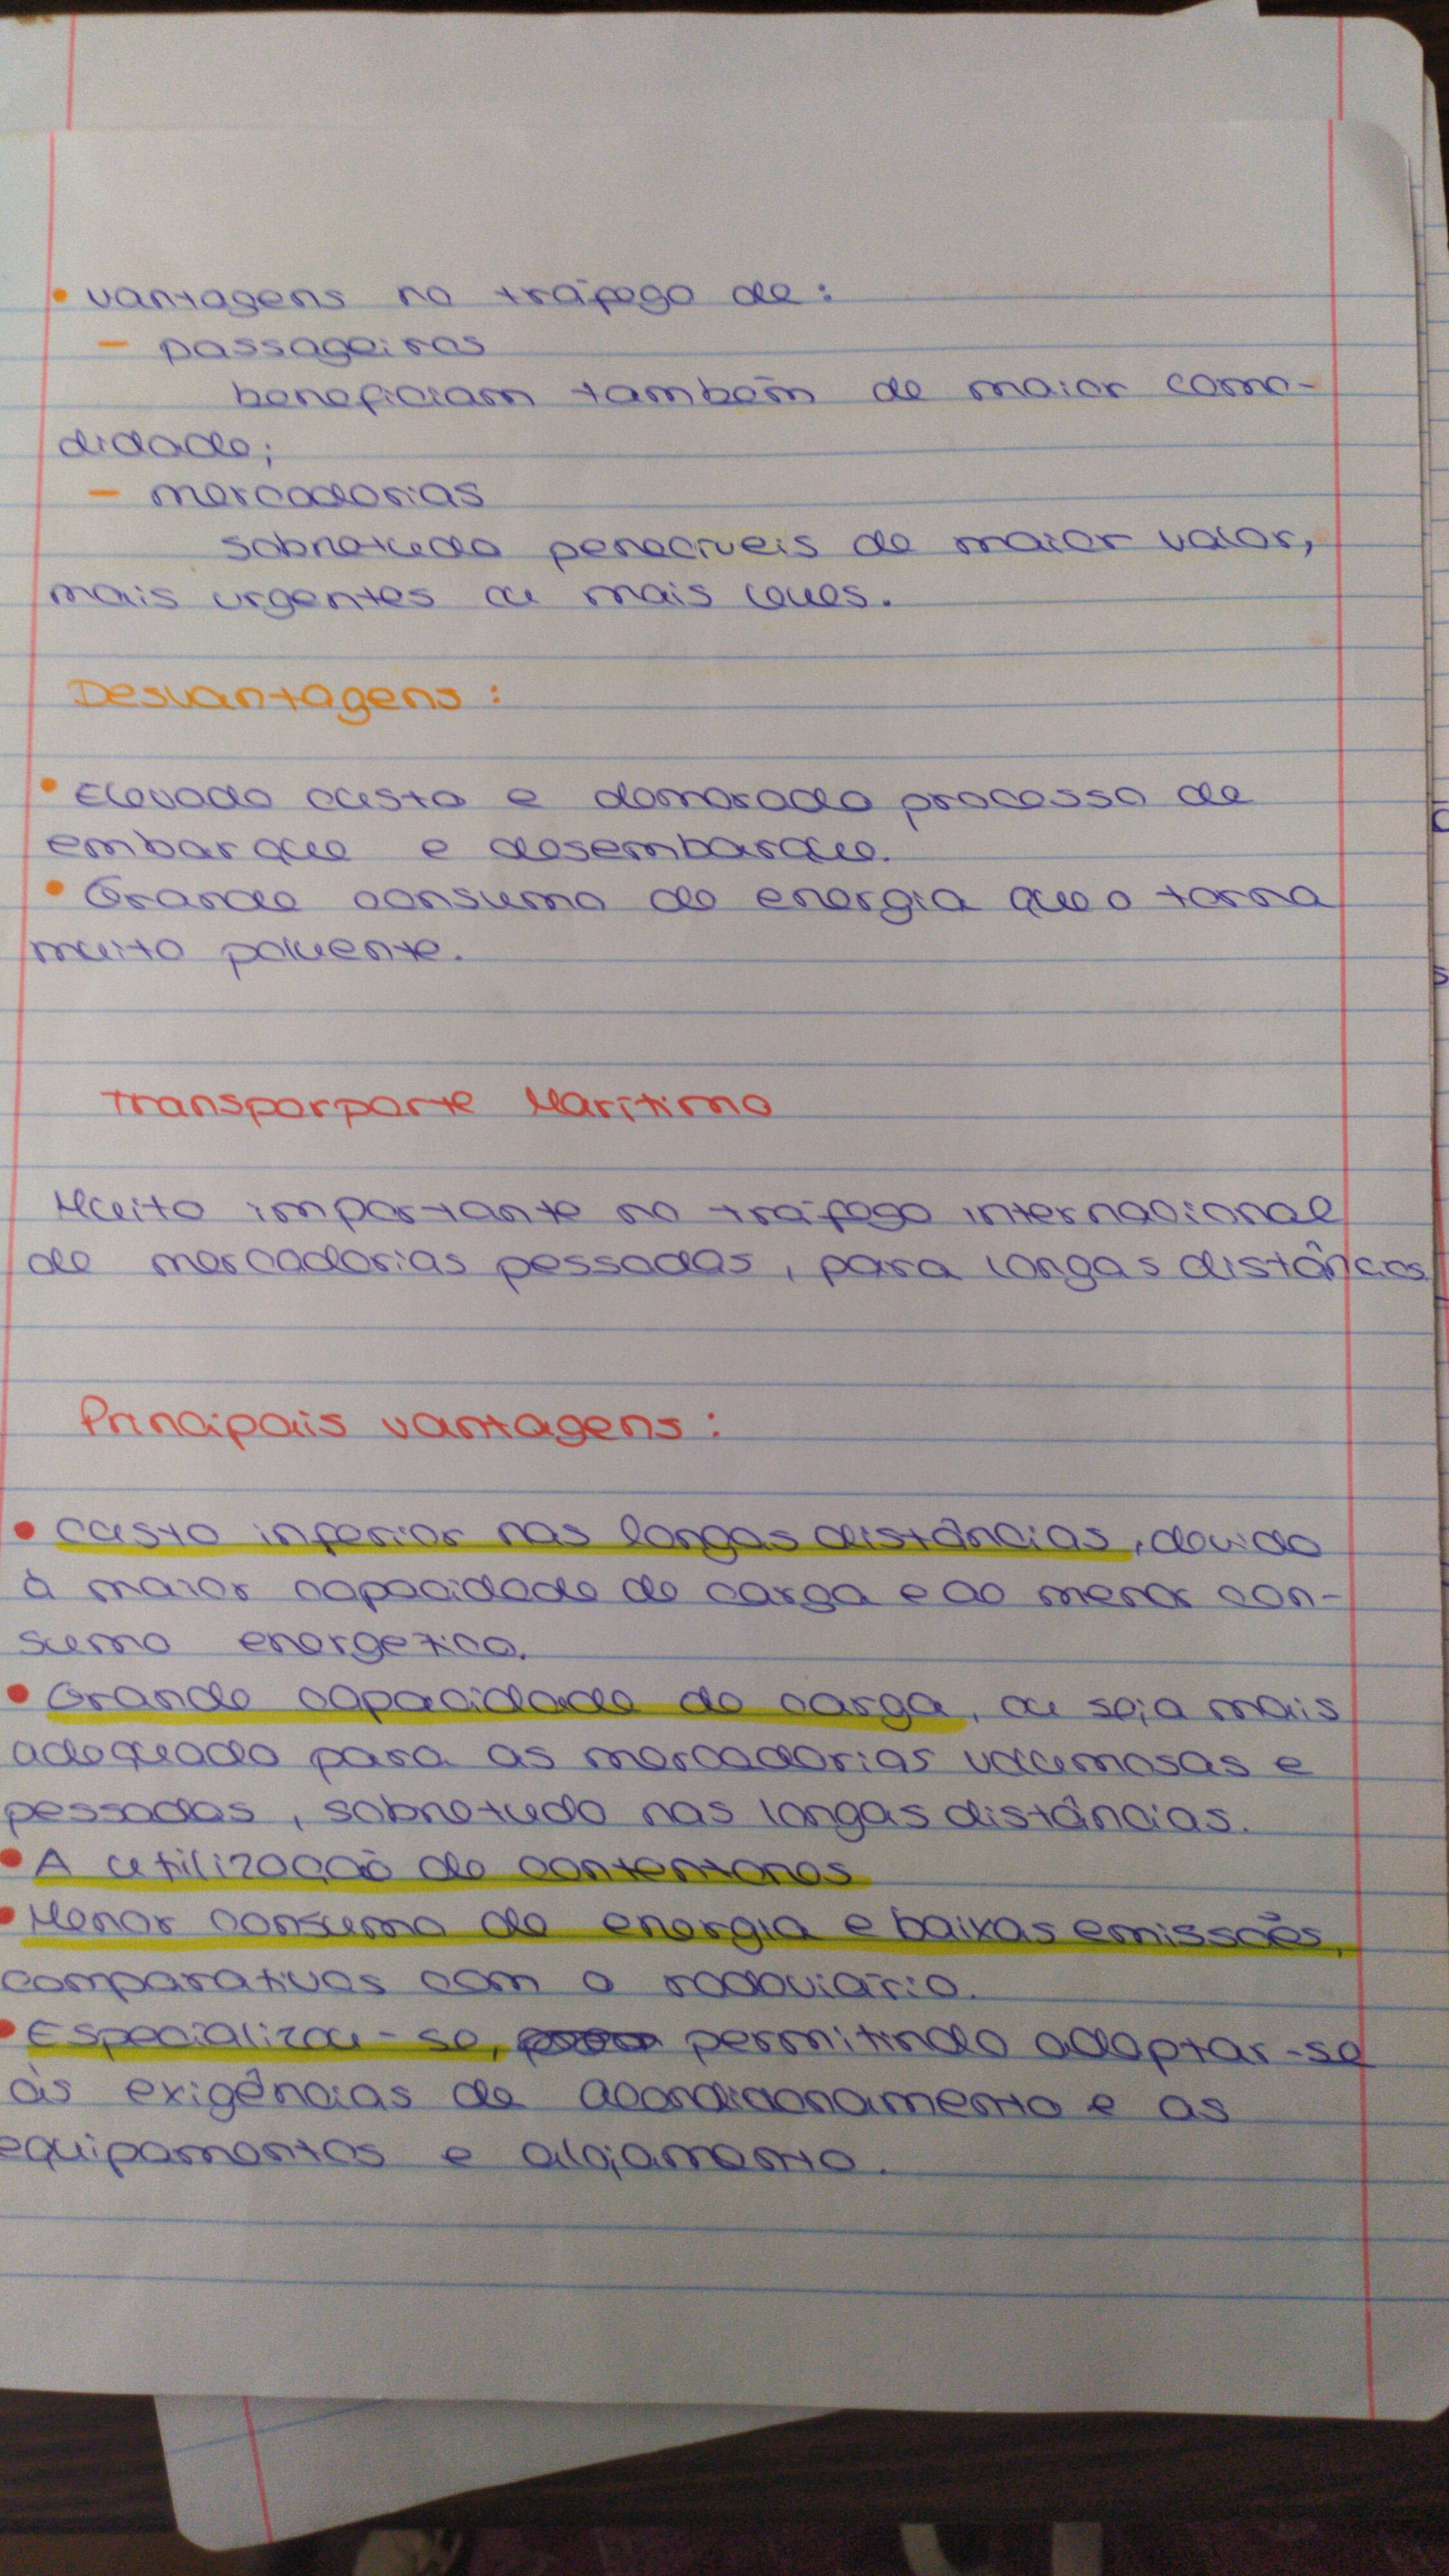 • vantagens no tráfego de:
- passageiros
beneficiam também de maior como-
didade;
- mercadorias
sobretudo perecíveis de maior valor,
mais urgentes ou mais leves.
Desvantagens:
• Elevado custo e demorado processo de
embarque e desembarque.
• Grande consumo de energia que o torna
muito poluente.
Transporporte Marítimo
Muito importante no tráfego internacional
de mercadorias pessadas, para longas distâncias
Principais vantagens:
• Custo inferior nas longas distâncias, devido
à maior capacidade de carga e ao menor con-
sumo energetico.
• Grande capacidade de carga, ou seja mais
adequado para as mercadorias volumosas e
pessadas, sobretudo nas longas distâncias.
• A utilização de contentores
• Menor consumo de energia e baixas emissões,
comparativas com o rodoviário.
• Especializou-se, permitindo adaptar-se
às exigências de acondicionamento e as
equipamentos e alojamento.